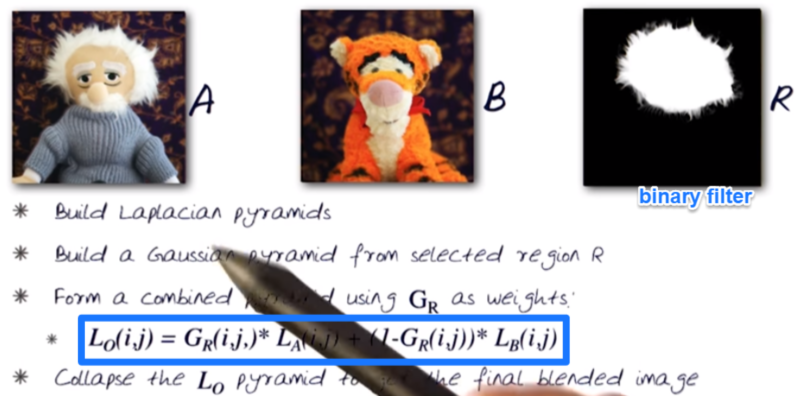 A
B
R
binary filter
* Build Laplacian pyramids
* Build a Gaussian pyramid from selected region R
* Form a combined using G_R as weights:
* L_O(i,j) = G_R(i,j,)* L_A(i,j) + (1-G_R(i,j))* L_B(i,j)
* Collapse the L_O pyramid the final blended image